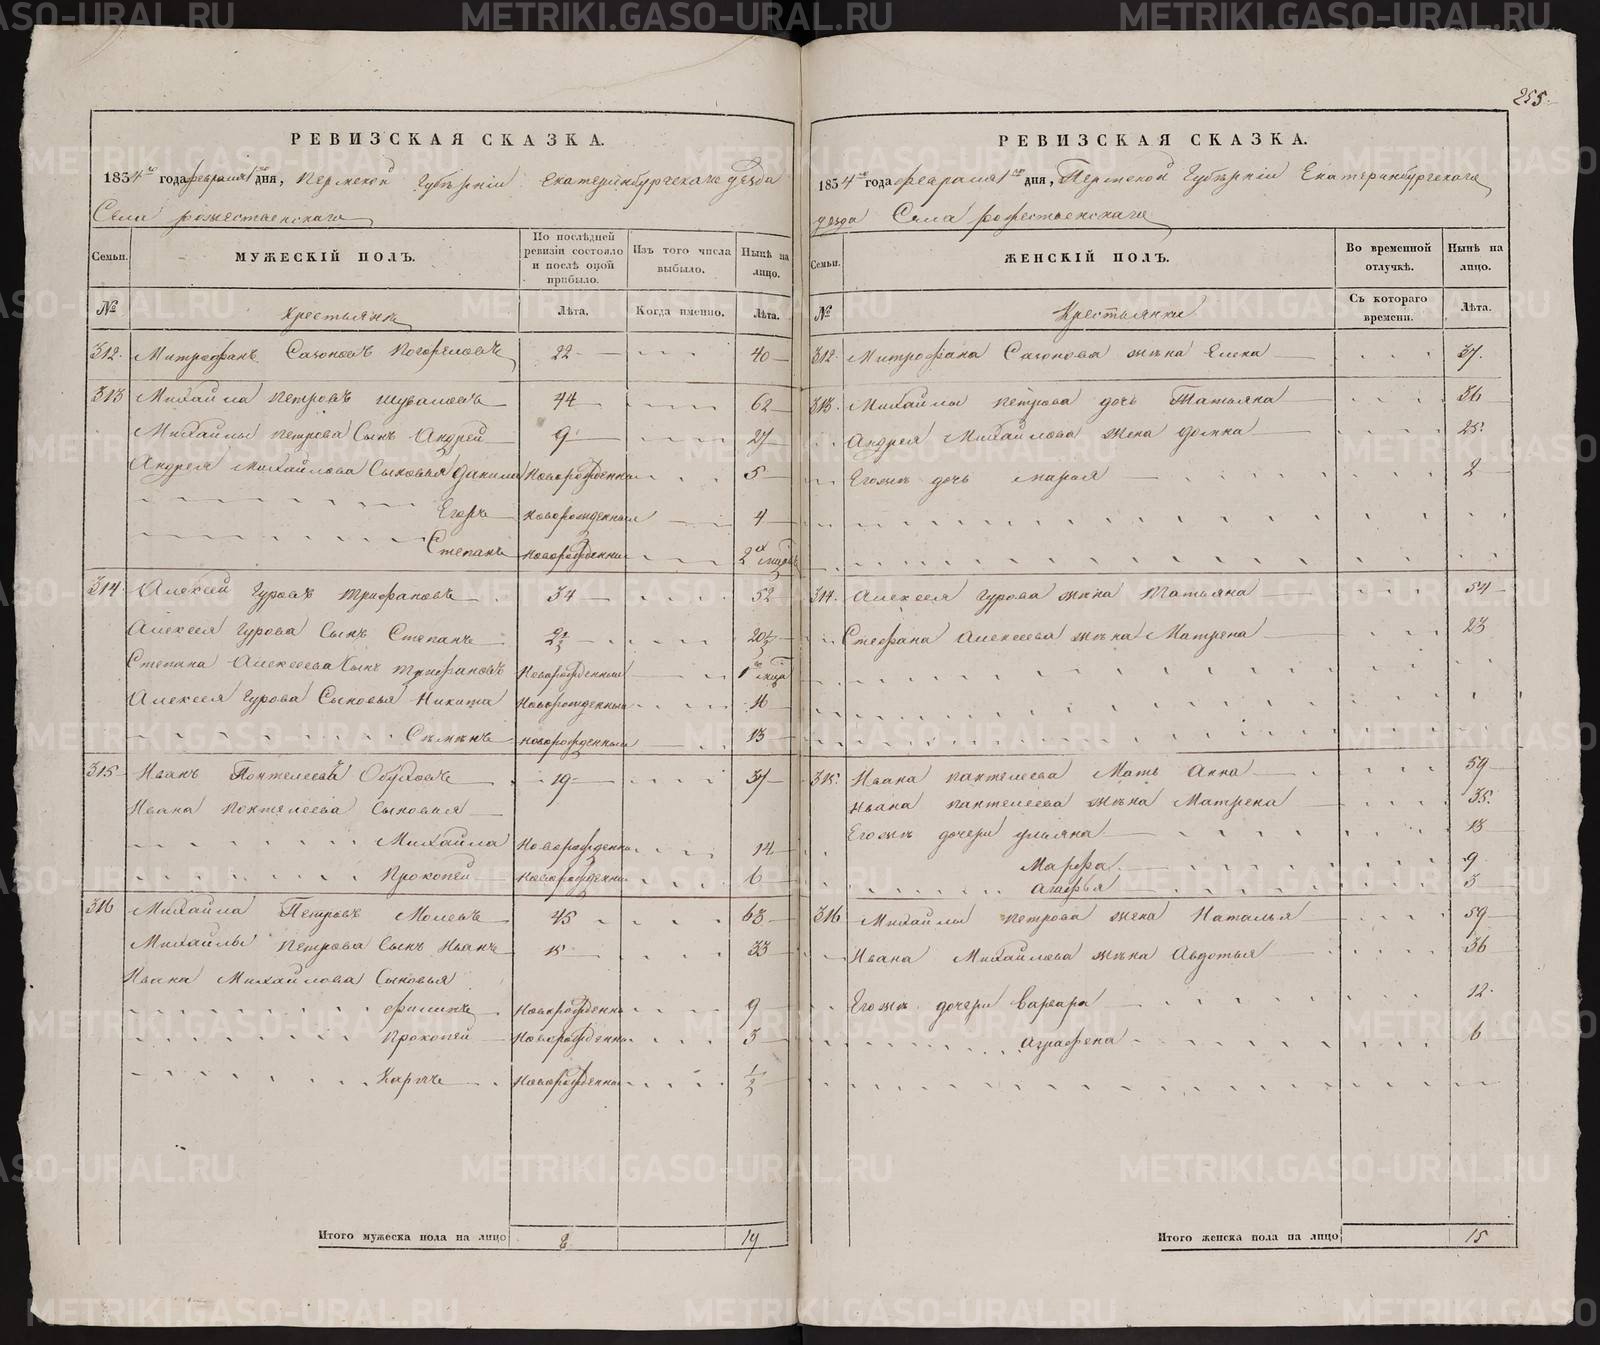 255.
РЕВИЗСКАЯ СКАЗКА.
1854го года февраля 1го дня, Пермской Губернiи Екатеринбургскаго уезда
Села рожественскаго
Семьи. МУЖЕСКIЙ ПОЛЪ. По послѣдней ревизiи состояло и послѣ оной прибыло. Изъ того числа выбыло. Нынѣ на лицо.
№ Крестьянъ Лѣта. Когда именно. Лѣта.
312. Митрофанъ Сазоновъ Погореловъ 22 40
313 Михайла петровъ шуваловъ 44 62
Михайлы петрова Сынъ Андрей 9 27
Андрея михайлова Сыновья данила Новорожденны 5
Егоръ новорожденный 4
Степанъ новорожденны 2х
314 Алексей Гуровъ трифановъ 34 52
Алексея Гурова Сынъ Степанъ 2½ 20½
Степана Алексеева Сынъ трифановъ Новорожденный 1
Алексея Гурова Сыновья Никита Новорожденный 16
Семенъ новорожденный 13
315 Иванъ Понтелеевъ Обуховъ 19 37
Ивана понтелеева Сыновья
Михайла Новорожденны 14
Прокопей Новорожденны 6
316 Михайла Петровъ Молевъ 45 63
Михайлы петрова Сынъ Иванъ 15 33
Ивана Михайлова Сыновья
филипъ Новорожденны 9
Прокопей Новорожденны 3
Карпъ Новорожденны ½
Итого мужеска пола на лицо 8 19
РЕВИЗСКАЯ СКАЗКА.
1854го года февраля 1го дня, Пермской Губернiи Екатеринбургскаго
уезда Села рожественскаго
Семьи. ЖЕНСКIЙ ПОЛЪ. Во временной отлучкѣ. Нынѣ на лицо.
№ Крестьянки Съ котораго времени. Лѣта.
312. Митрофана Сазонова жена Елена 37.
313. Михайлы петрова дочь Татьяна 36
Андрея Михайлова жена домна 25.
Егожъ дочь марья 2
314. Алексея гурова жена Татьяна 54
Стефана алексеева жена Матрена 23
315. Ивана пантелеева Мать Анна 59
Ивана пантелеева жена Матрена 35.
Егожъ дочери ульяна 13
Марфа. 9
агафья 3
316 Михайлы петрова жена Наталья 59
Ивана Михайлова жена Авдотья 36
Егожъ дочери Варвара 12.
аграфена 6
Итого женска пола на лицо 15
METRIKI.GASO-URAL.RU